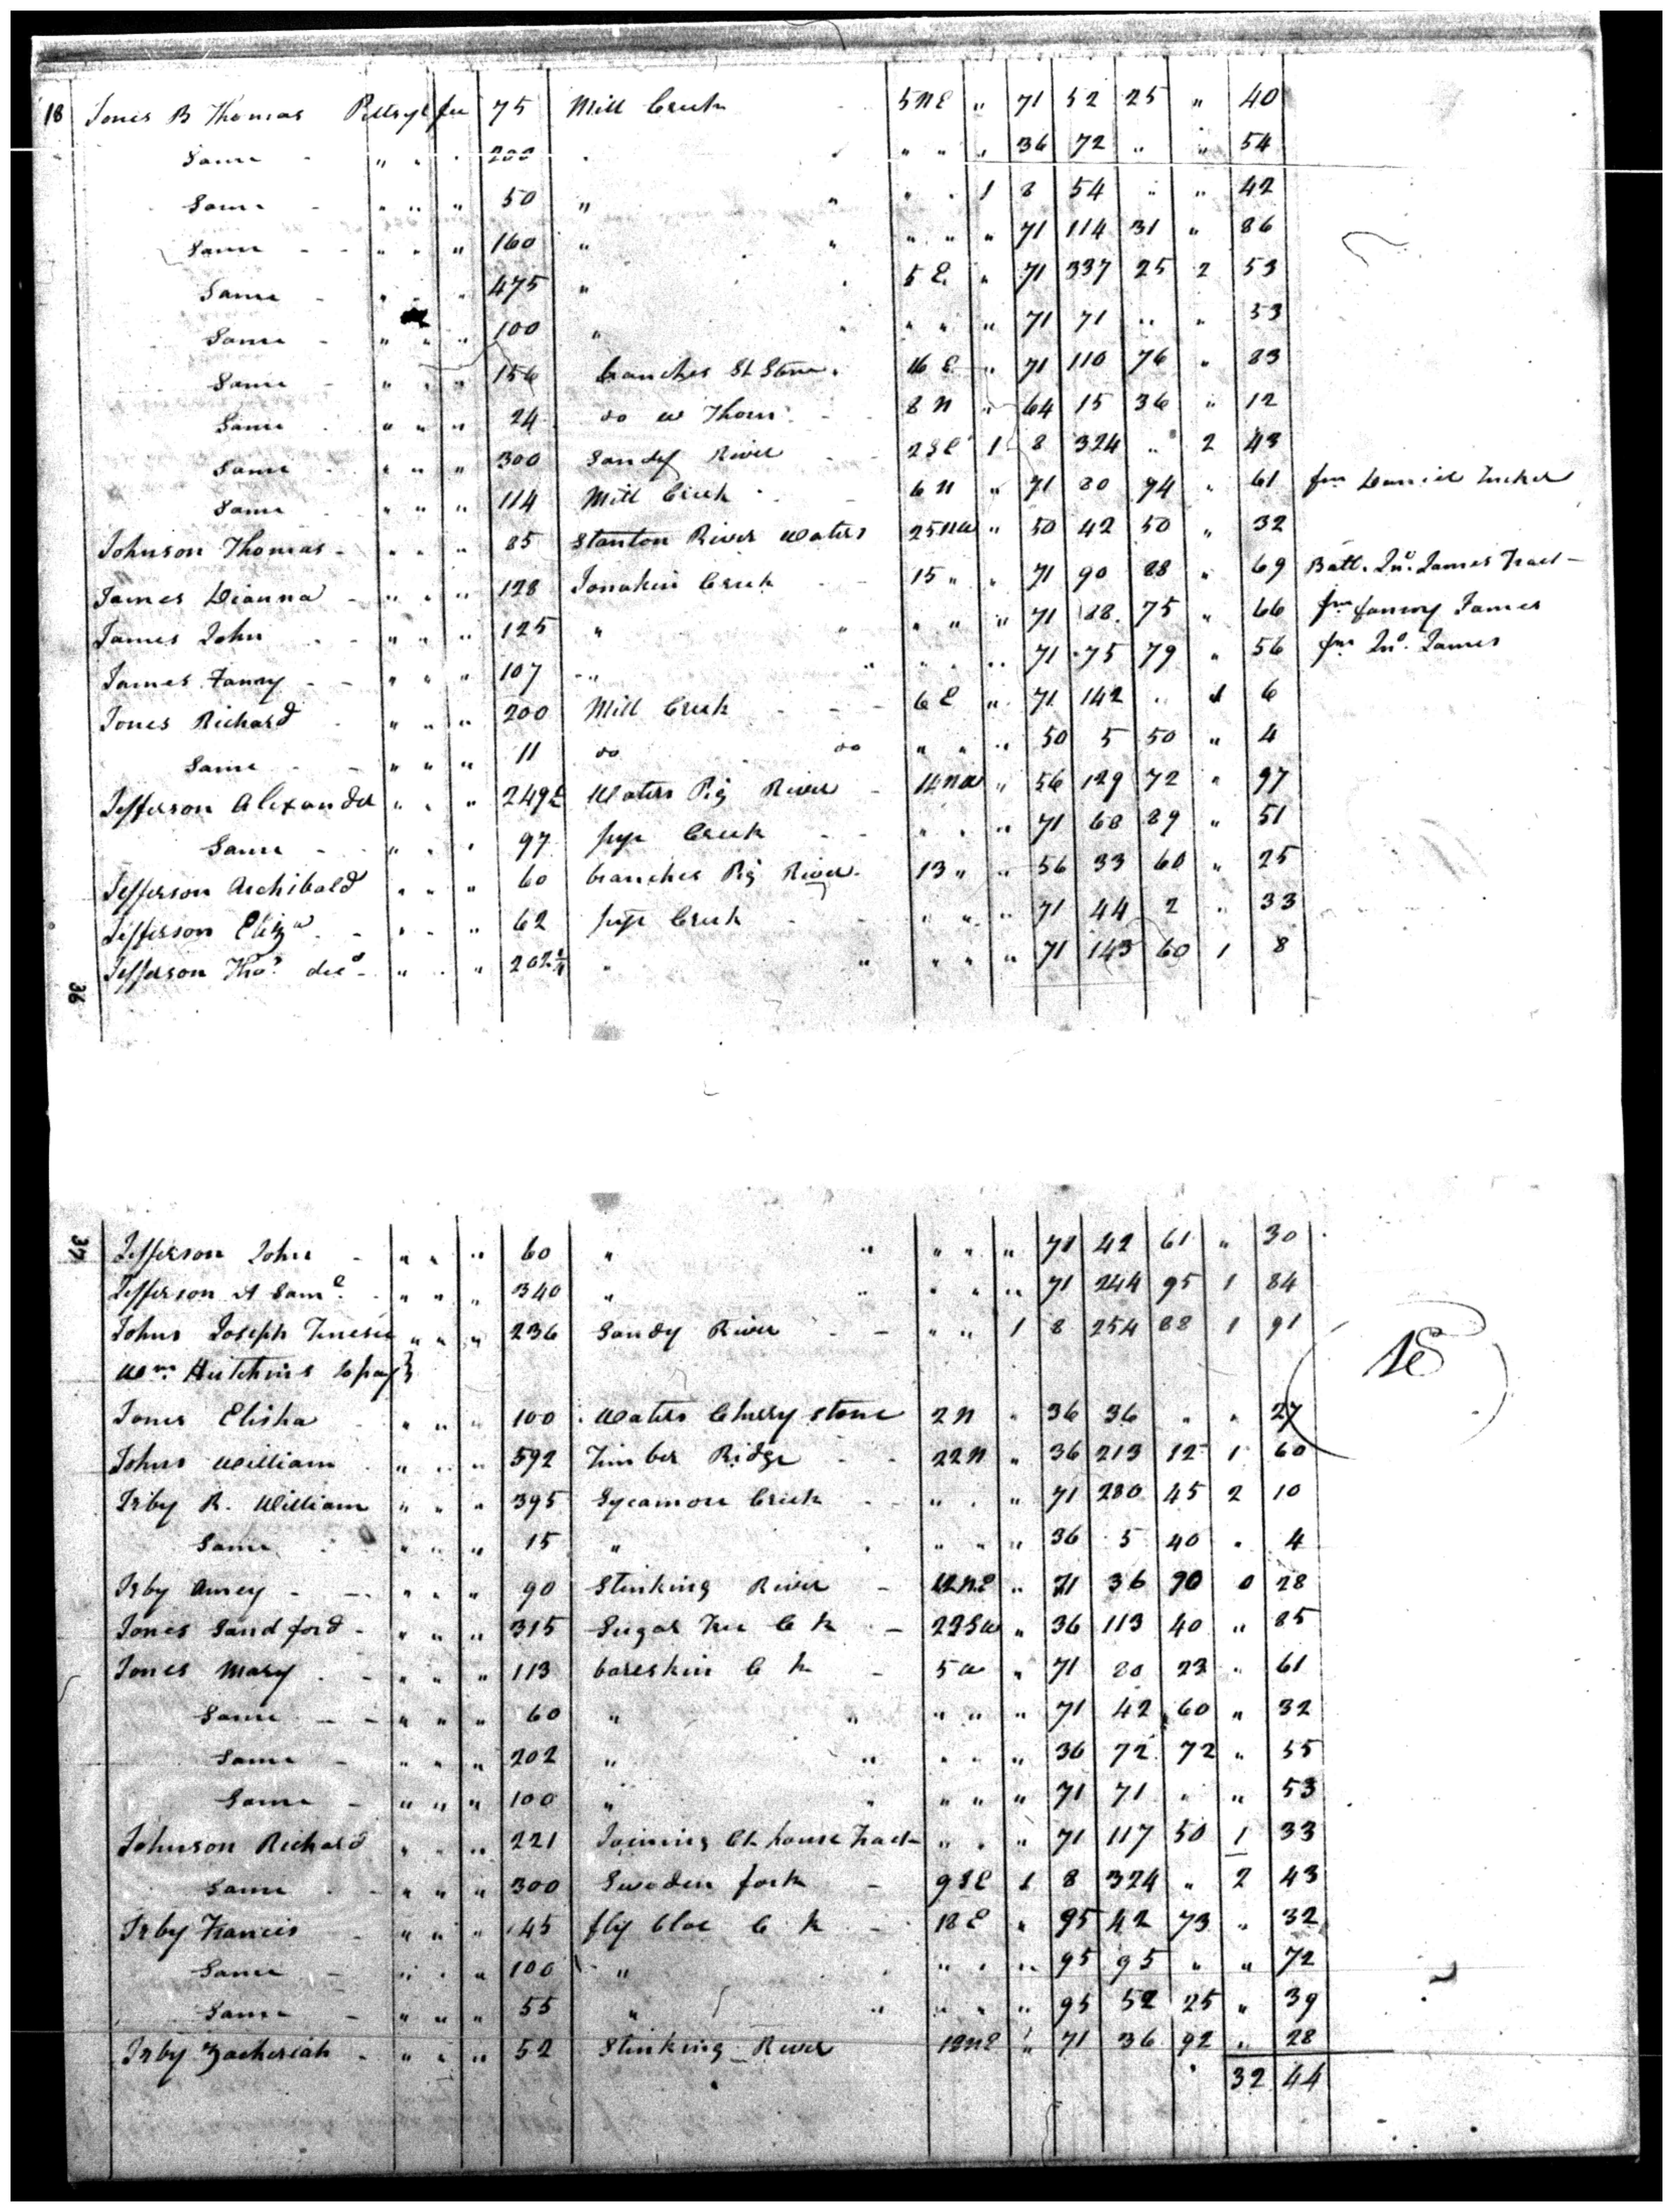 18 Jones B Thomas Pittsyl fee 75 Mill Creek 5 NE " 71 52 25 " 40
Same " " " 200 " " " " " 36 72 " " 54
Same " " " 50 " " " " 1 8 54 " " 42
Same " " " 160 " " " " " 71 114 31 " 86
Same " " " 475 " " 5 E. " 71 337 25 2 53
Same " " " 100 " " " " " 71 71 " " 53
Same " " " 156 branches St Stone 16 E " 71 110 76 " 83
Same " " " 24 do W Thom 8 N " 64 15 36 " 12
Same " " " 300 Sandy River 2 SE 1 8 324 " 2 43
Same " " " 114 Mill Creek 6 N " 71 80 94 " 61 fm Daniel Tucker
Johnson Thomas " " " 85 Stanton River Waters 25 NW " 50 42 50 " 32
James Dianna " " " 128 Jonakin Creek 15 " " 71 90 88 " 69 Batt. Jno. James Tract
James John " " " 125 " " " " " 71 88 75 " 66 fm fanny James
James Fanny " " " 107 " " " " " 71 75 79 " 56 fm Jno. James
Jones Richard " " " 200 Mill Creek 6 E " 71 142 " 1 6
Same " " " 11 do do " " " 50 5 50 " 4
Jefferson Alexander " " " 249½ Waters Pig River 14 NW " 56 129 72 " 97
Same " " " 97 frye Creek " " " 71 68 89 " 51
Jefferson Archibald " " " 60 branches Pig River 13 " " 56 33 60 " 25
Jefferson Eliza " " " 62 frye Creek " " " 71 44 2 " 33
Jefferson Tho? decd " " " 202¼ " " " " " 71 143 60 1 8
36
37 Jefferson John " " " 60 " " " " " 71 42 61 " 30
Jefferson A Saml " " " 340 " " " " " 71 244 95 1 84
Johns Joseph " " " 236 Sandy River " " 1 8 254 88 1 91
Wm. Hutchins to pay }
18
Jones Elisha " " " 100 Waters Cherry stone 2 N " 36 36 " " 27
Johns William " " " 592 Timber Ridge 22 N " 36 213 12 1 60
Irby R. William " " " 395 Sycamore Creek " " " 71 280 45 2 10
Same " " " 15 " " " " " 36 5 40 " 4
Irby Amey " " " 90 Stinking River 12 NE " 71 36 90 0 28
Jones Sandford " " " 315 Sugar Tree C k 22 SW " 36 113 40 " 85
Jones Mary " " " 113 bareskin C k 5 W " 71 80 23 " 61
Same " " " 60 " " " " " 71 42 60 " 32
Same " " " 202 " " " " " 36 72 72 " 55
Same " " " 100 " " " " " 71 71 " " 53
Johnson Richard " " " 221 Joining Ct. house Tract " " " 71 117 50 1 33
Same " " " 300 Sweden fork 9 SE 1 8 324 " 2 43
Irby Francis " " " 45 fly bloe C k 18 E " 95 42 73 " 32
Same " " " 100 " " " " " 95 95 " " 72
Same " " " 55 " " " " " 95 52 25 " 39
Irby Zacheriah " " " 52 Stinking River 12 NE " 71 36 92 " 28
32 44